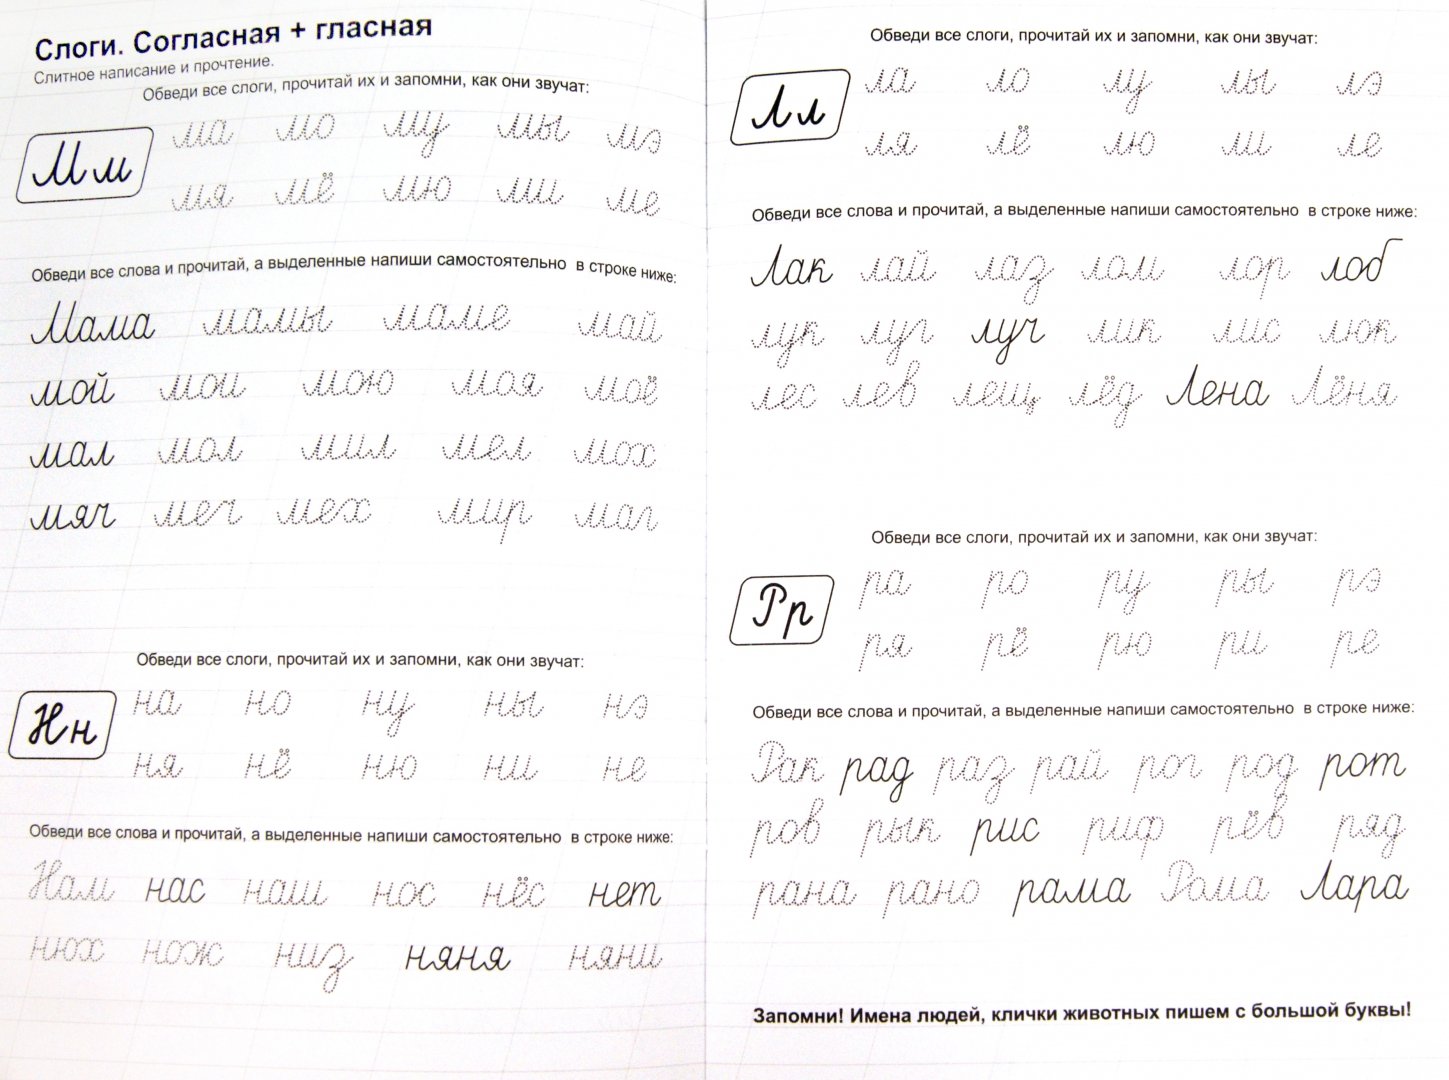 Слоги. Согласная + гласная
Слитное написание и прочтение.
Обведи все слоги, прочитай их и запомни, как они звучат:
Мм
ма мо му мы мэ
мя мё мю ми ме
Обведи все слова и прочитай, а выделенные напиши самостоятельно в строке ниже:
Мама мамы маме май
мой мои мою моя моё
мал мол мил мел мох
мяч меч мех мир маг
Обведи все слоги, прочитай их и запомни, как они звучат:
Нн
на но ну ны нэ
ня нё ню ни не
Обведи все слова и прочитай, а выделенные напиши самостоятельно в строке ниже:
Нам нас наш нос нёс нет
нюх нож низ няня няни
Обведи все слоги, прочитай их и запомни, как они звучат:
Лл
ла ло лу лы лэ
ля лё лю ли ле
Обведи все слова и прочитай, а выделенные напиши самостоятельно в строке ниже:
Лак лай лаз лом лор лоб
лук луг луч лик лис люк
лес лев лещ лёд Лена Лёня
Обведи все слоги, прочитай их и запомни, как они звучат:
Рр
ра ро ру ры рэ
ря рё рю ри ре
Обведи все слова и прочитай, а выделенные напиши самостоятельно в строке ниже:
Рак рад раз рай рог род рот
ров рык рис риф рёв ряд
рана рано рама Рома Лара
Запомни! Имена людей, клички животных пишем с большой буквы!